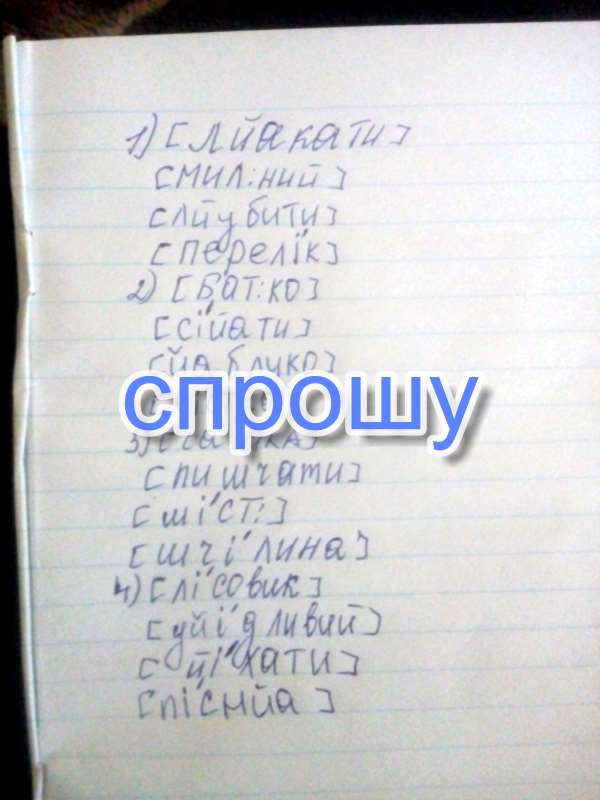 1) [лйакати]
[мил:ний]
[лйубити]
[перелі́к]
2) [ба́т:ко]
[сі́йати]
[йаблуко]
спрошу
3)
[пишчати]
[ші́ст:]
[шчі́лина]
4) [лі́совик]
[уйі́дливий]
[йі́хати]
[пі́снйа]